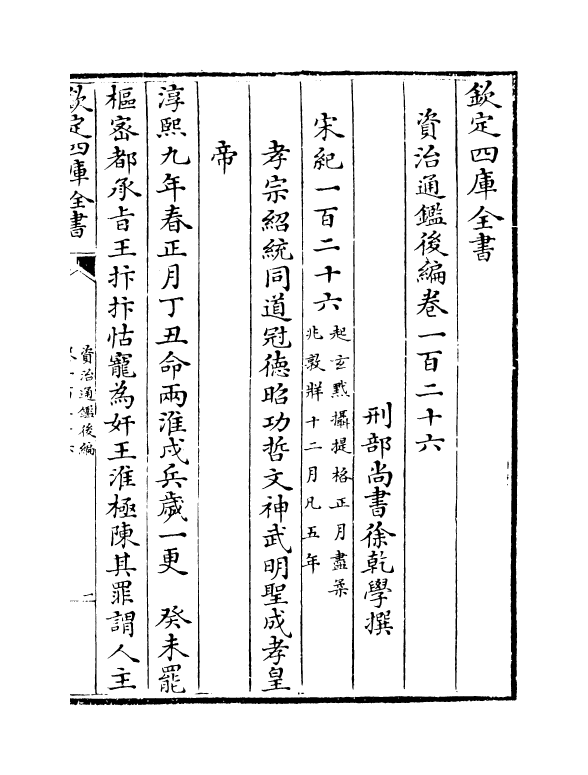 欽定四庫全書
資治通鑑後編卷一百二十六
刑部尚書徐乾學撰
宋紀一百二十六起玄黓攝提格正月盡柔
兆敦牂十二月凡五年
孝宗紹統同道冠德昭功哲文神武明聖成孝皇
帝
淳熙九年春正月丁丑命兩淮戍兵歲一更 癸未罷
樞密都承旨王抃抃怙寵為奸王淮極陳其罪謂人主
欽定四庫全書
資治通鑑後編